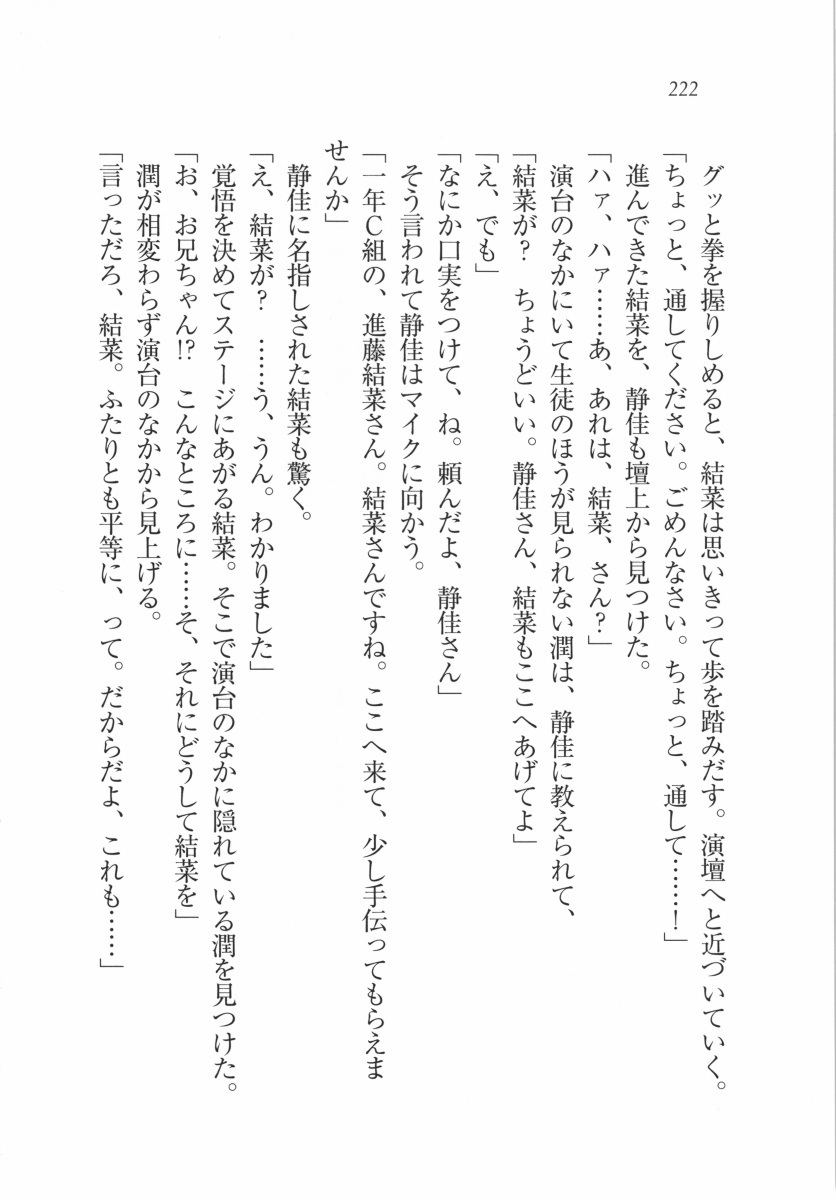 222
グッと拳を握りしめると、結菜は思いきって歩を踏みだす。演壇へと近づいていく。
「ちょっと、通してください。ごめんなさい。ちょっと、通して……！」
進んできた結菜を、静佳も壇上から見つけた。
「ハァ、ハァ……あ、あれは、結菜、さん？」
演台のなかにいて生徒のほうが見られない潤は、静佳に教えられて、
「結菜が？　ちょうどいい。静佳さん、結菜もここへあげてよ」
「え、でも」
「なにか口実をつけて、ね。頼んだよ、静佳さん」
そう言われて静佳はマイクに向かう。
「一年Ｃ組の、進藤結菜さん。結菜さんですね。ここへ来て、少し手伝ってもらえま
せんか」
静佳に名指しされた結菜も驚く。
「え、結菜が？　……う、うん。わかりました」
覚悟を決めてステージにあがる結菜。そこで演台のなかに隠れている潤を見つけた。
「お、お兄ちゃん!?　こんなところに……そ、それにどうして結菜を」
潤が相変わらず演台のなかから見上げる。
「言っただろ、結菜。ふたりとも平等に、って。だからだよ、これも……」